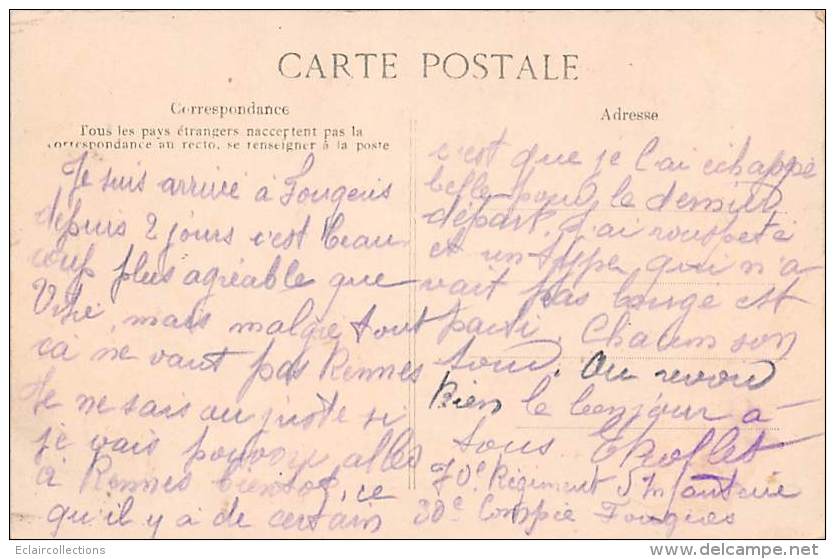 CARTE POSTALE
Correspondance
Tous les pays étrangers n'acceptent pas la
correspondance au recto, se renseigner à la poste
Je suis arrivé à Fougeres
depuis 2 jours c'est beau
coup plus agréable que
Vitré, mais malgré tout
ca ne vaut pas Rennes
Je ne sais au juste si
je vais pouvoir aller
à Rennes bientot, ce
qu'il y a de certain
Adresse
c'est que je l'ai echappé
belle pour le dernier
départ. J'ai rouspeté
et un type qui n'a
vait pas bougé est
parti. Chacun son
tour. Au revoir
bien le bonjour a
tous
70e Régiment d'Infanterie
30e Compie Fougères
Eclaircollections
delcampe.net